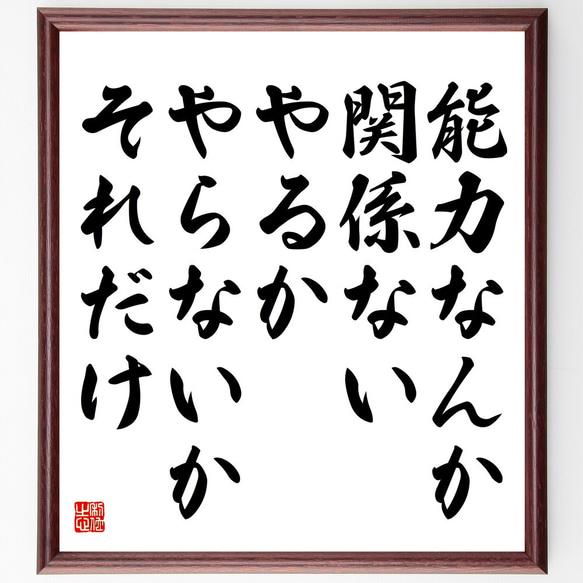 能力なんか
関係ない
やるか
やらないか
それだけ